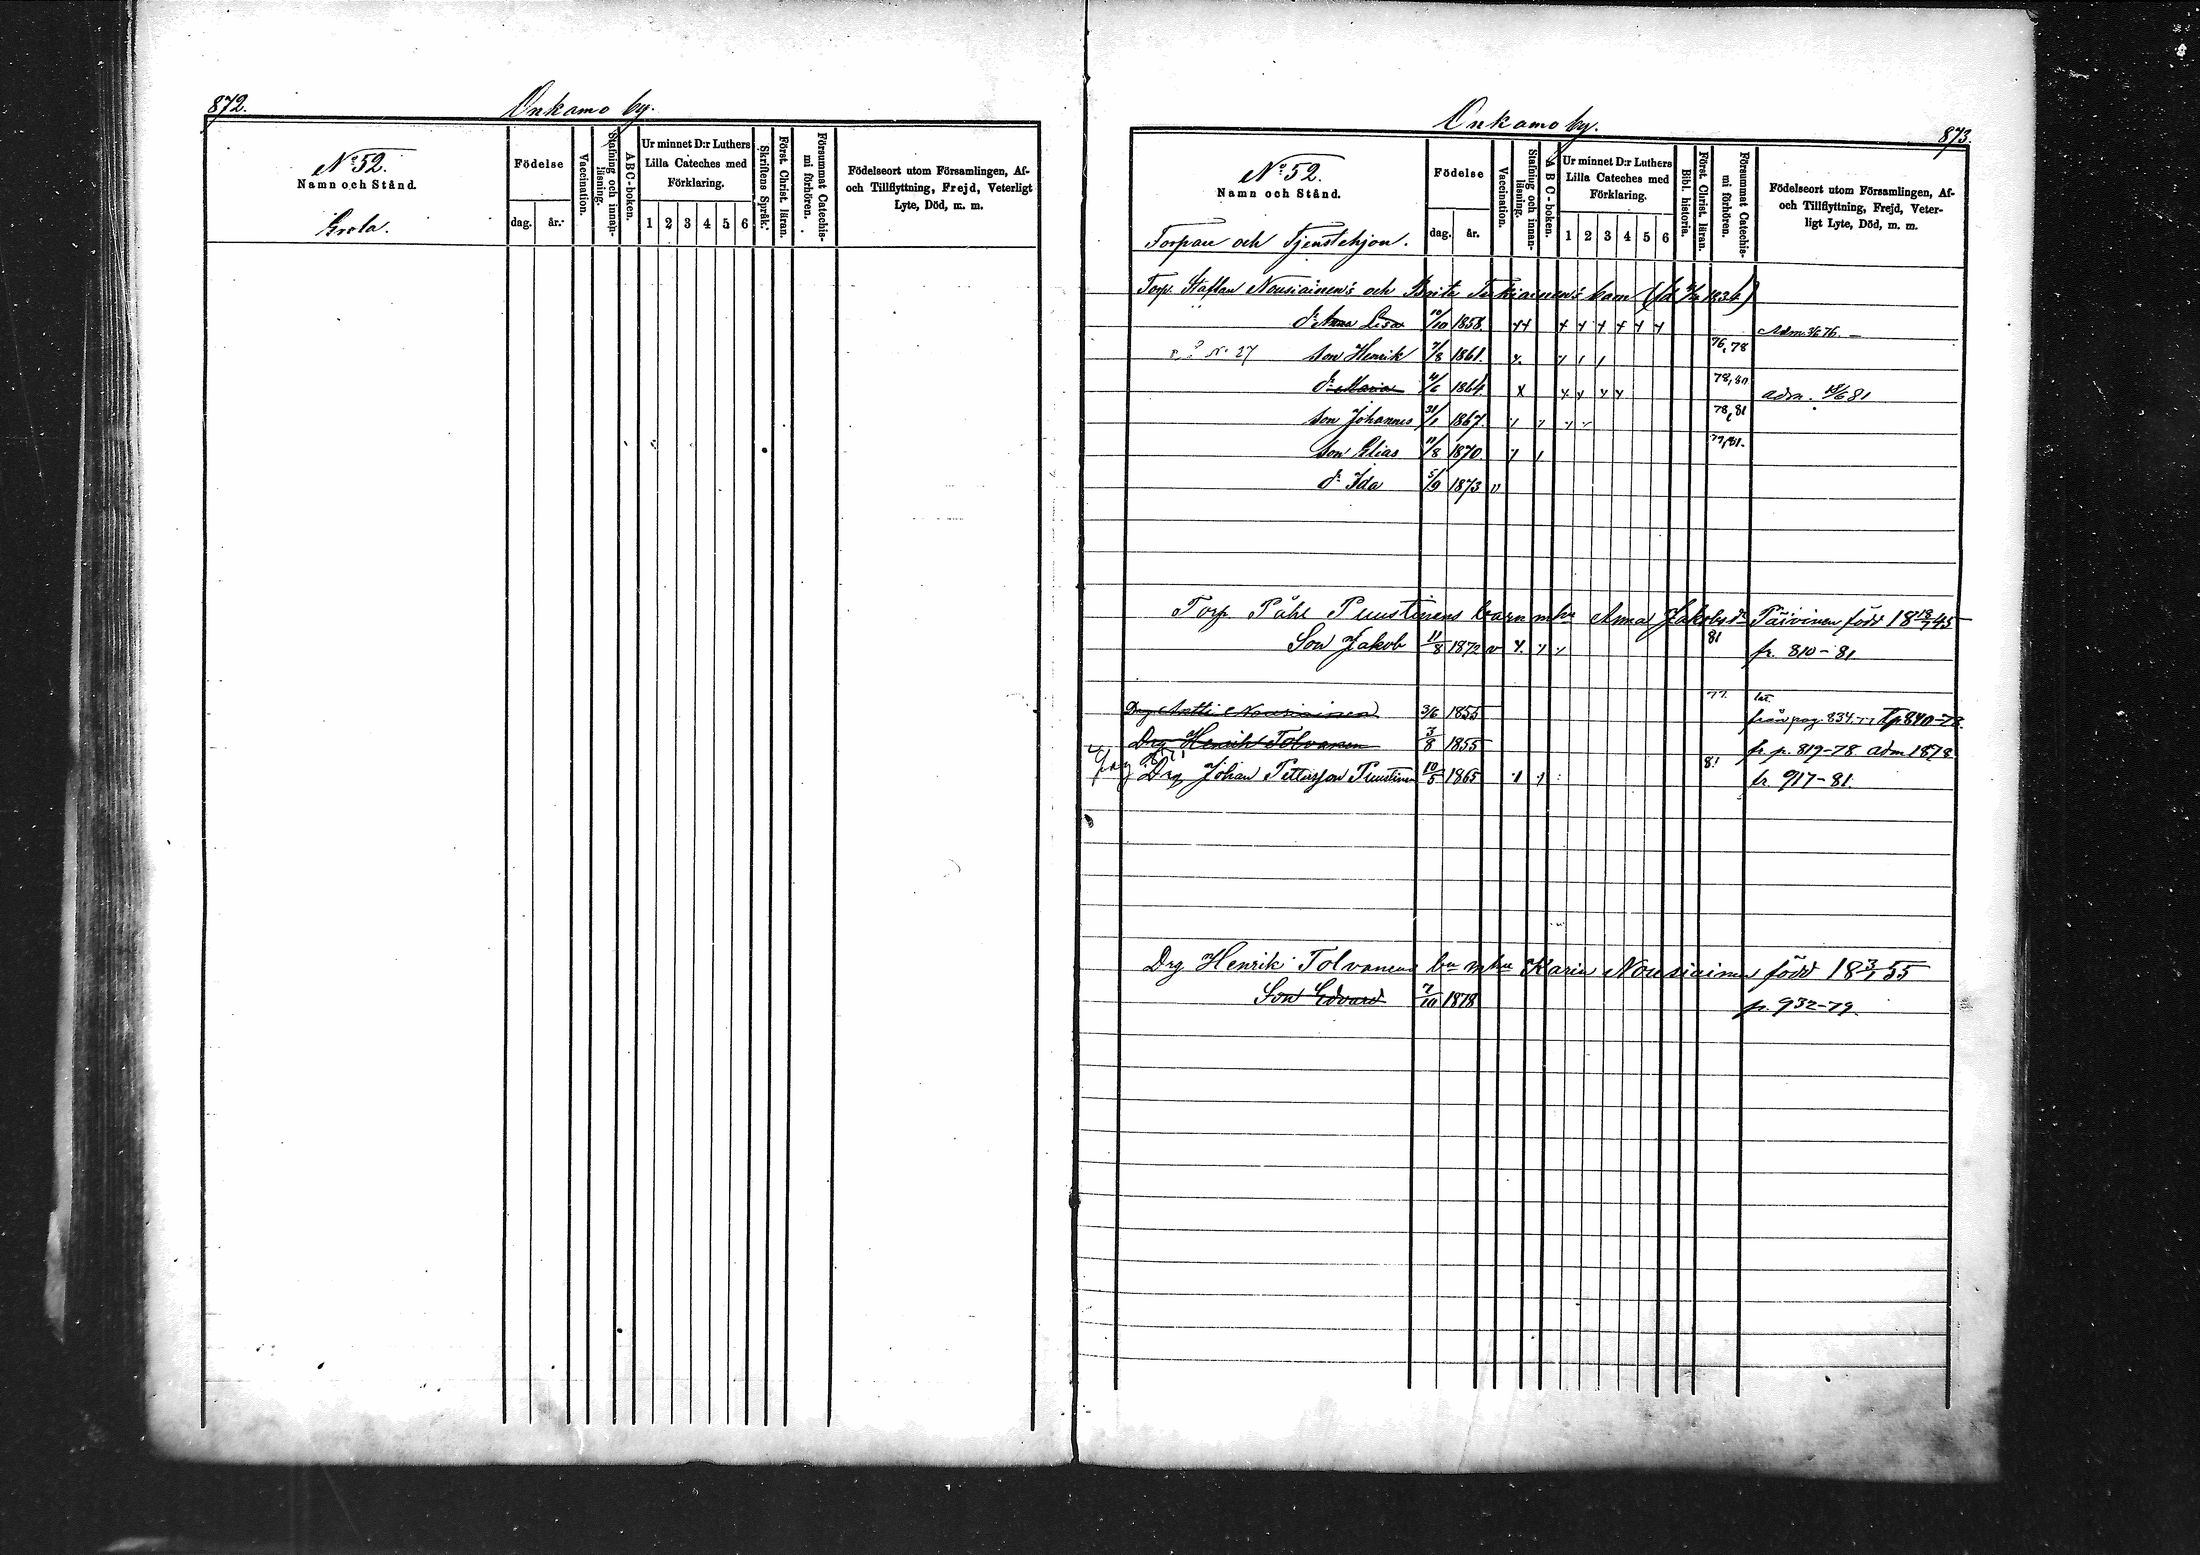 872.
Onkamo by.
N:o 52.
Namn och Stånd.
Grola.
Födelse
dag. år.
Vaccination.
Stafning och innan-läsning.
ABC-boken.
Ur minnet D:r Luthers
Lilla Cateches med
Förklaring.
1 2 3 4 5 6
Skriftens Språk.
Först. Christ. läran.
Försummat Catechis-mi förhören.
Födelseort utom Församlingen, Af-
och Tillflyttning, Frejd, Veterligt
Lyte, Död, m. m.
Onkamo by.
873.
N:o 52.
Namn och Stånd.
Torpare och Tjenstehjon.
Födelse
dag. år.
Vaccination.
Stafning och innan-läsning.
ABC-boken.
Ur minnet D:r Luthers
Lilla Cateches med
Förklaring.
1 2 3 4 5 6
Bibl. historia.
Först. Christ. läran.
Försummat Catechis-mi förhören.
Födelseort utom Församlingen, Af-
och Tillflyttning, Frejd, Veter-
ligt Lyte, Död, m. m.
Torp. Staffan Nousiainen's och Brita Turkiainen's barn
dr Anna Lisa 10/10 1858. Adm. 76.
No 27 son Henrik 7/8 1861. 76, 78
dr Maria 4/6 1864. 78, 80 adm. 81
son Johannes 31/1 1867. 78, 81
son Elias 11/8 1870. 79, 81.
dr Ida 5/9 1873
Torp Påhl Puustinens barn mhu Anna Jakobsdr Päivinen född 18 45
Son Jakob 11/8 1872 81 fr. 810-81.
Drg Antti Nousiainen 3/6 1855 77 från pag. 834 Tp 840-78.
Drg Henrik Tolvanen 3/8 1855 fr p. 819-78. adm 1878
Drg Johan Petterson Puustinen 10/5 1865 81 fr. 917-81.
Drg Henrik Tolvanens bn mhu Karin Nousiainen född 18 3/1 55
Son Edvard 7/10 1878 fr. 932-79.